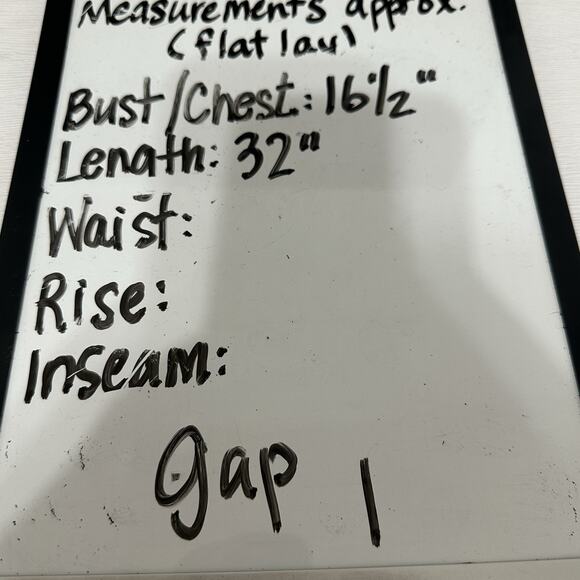 Measurements approx.
(flat lay)
Bust/Chest: 16 1/2"
Length: 32"
Waist:
Rise:
Inseam:
gap |